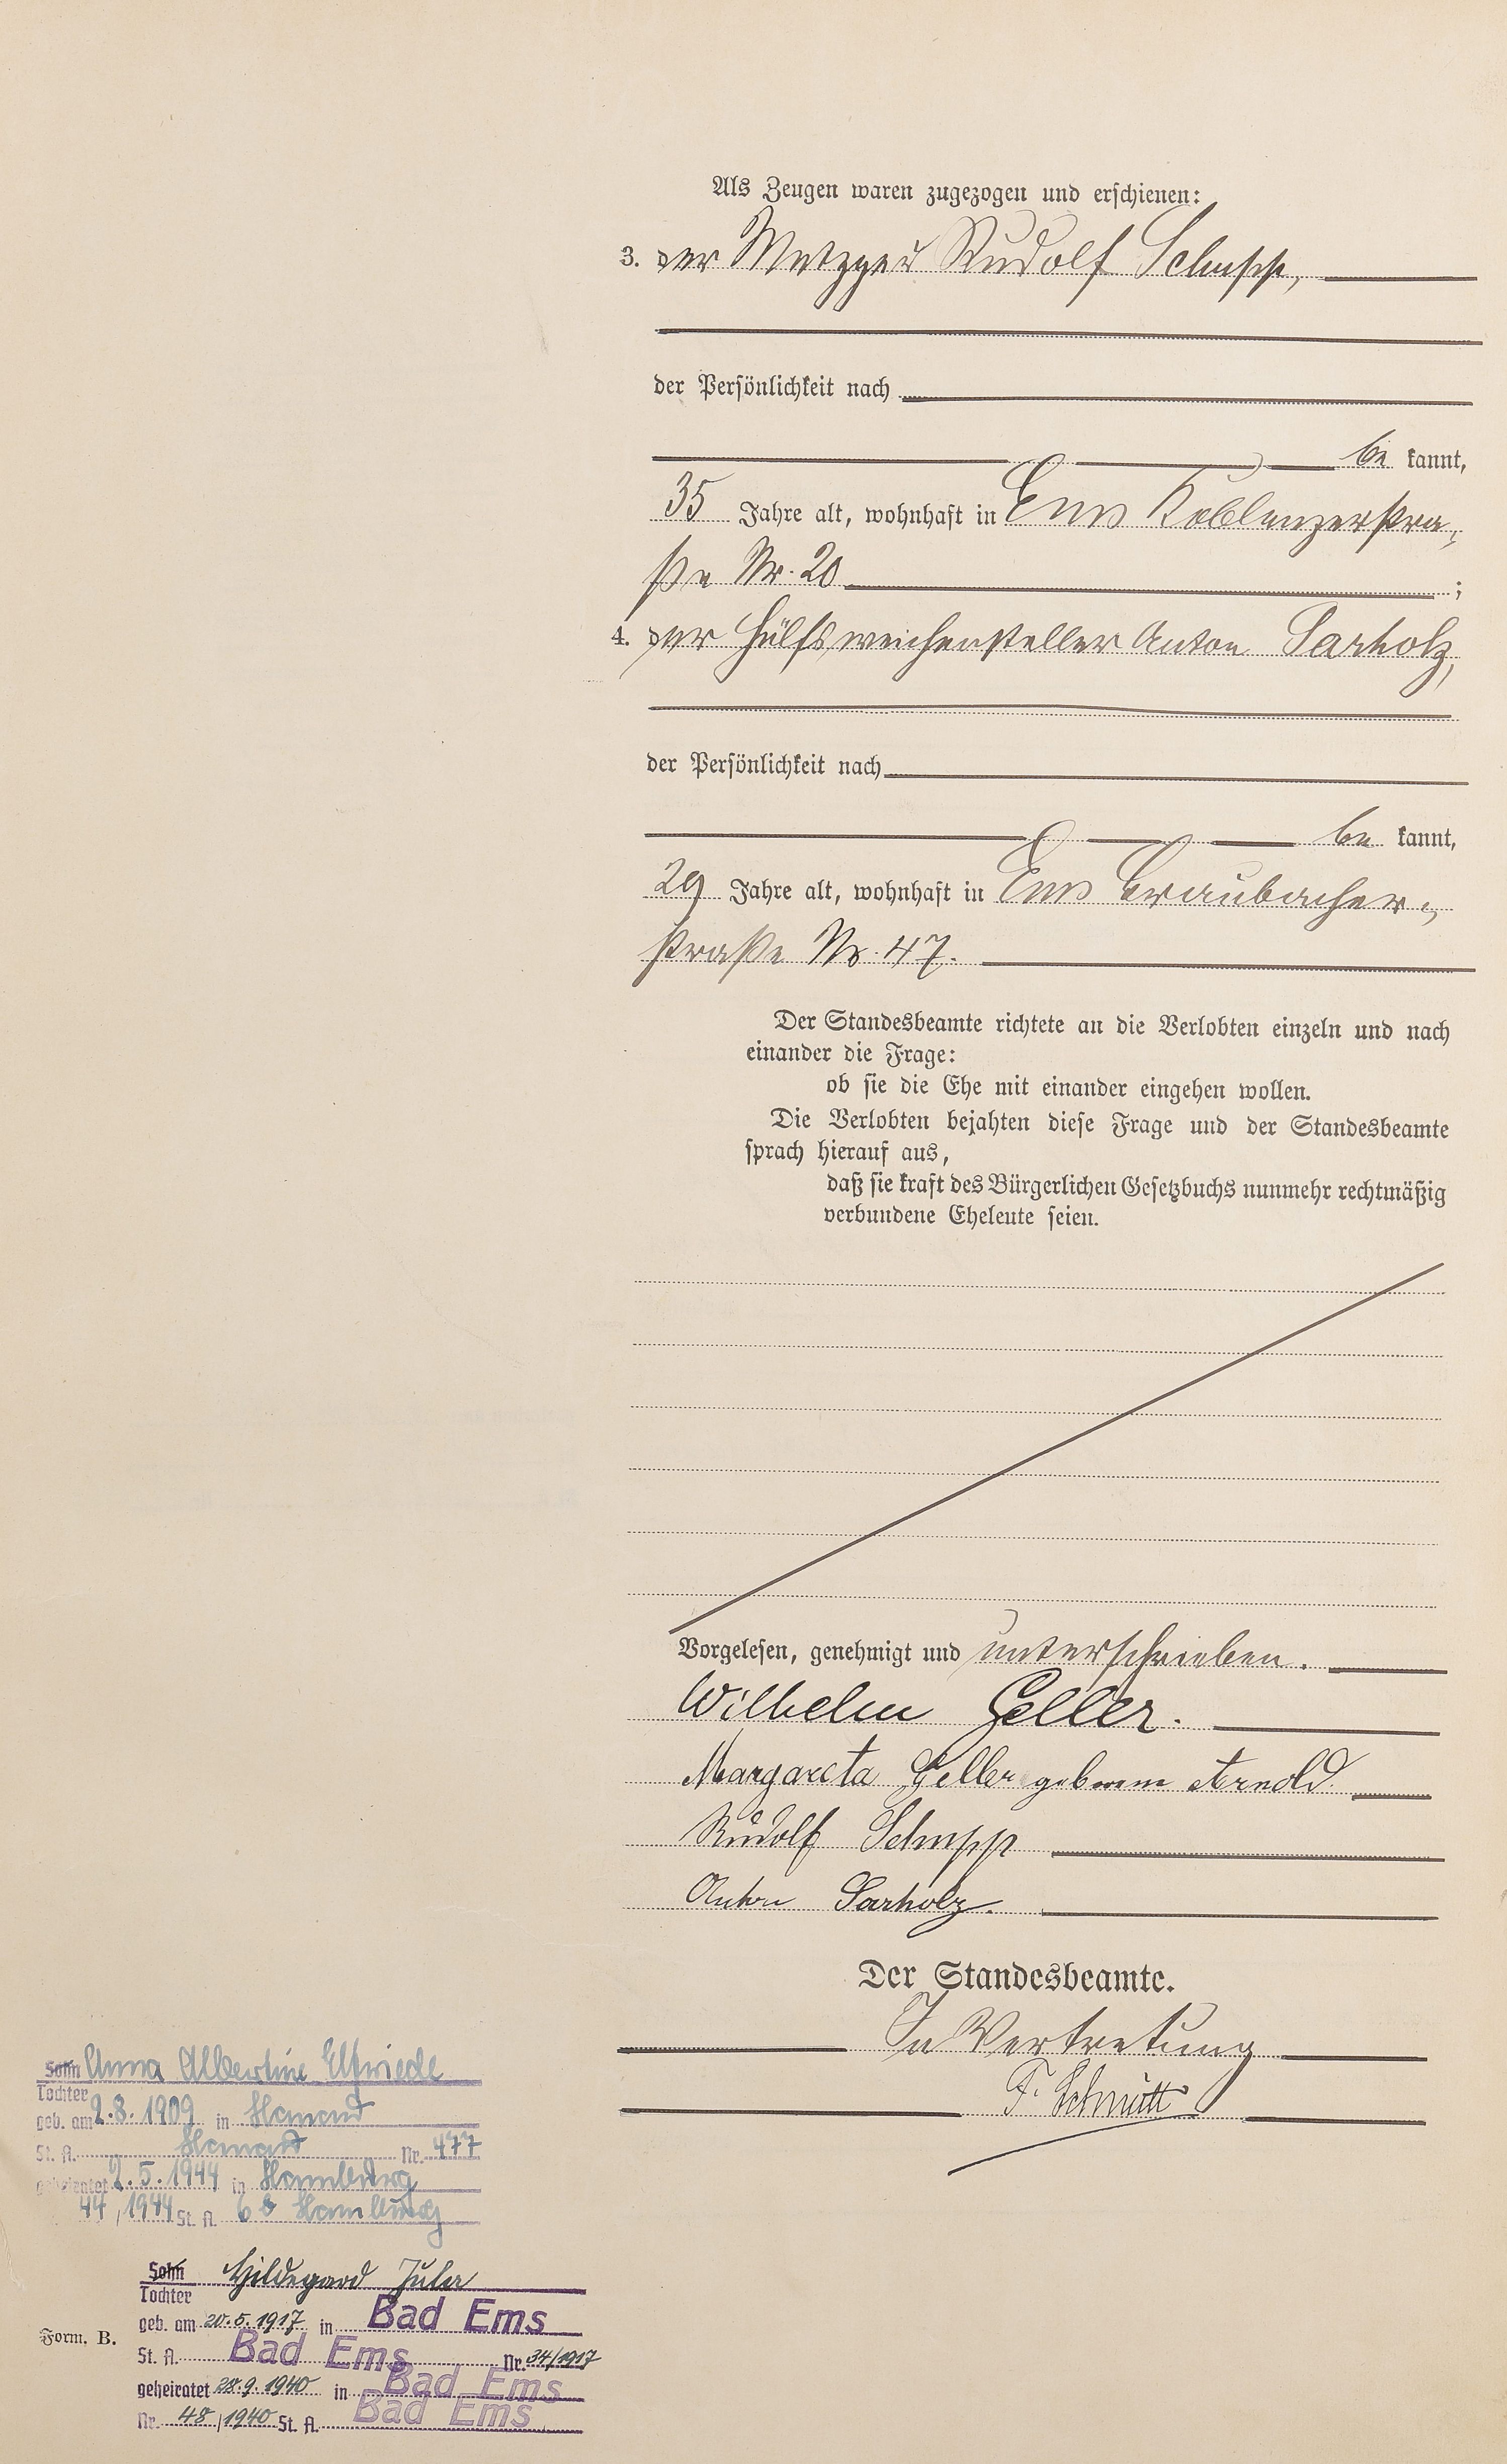 Als Zeugen waren zugezogen und erschienen:
3. der Metzger Rudolf Schupp,
der Persönlichkeit nach
be kannt,
35 Jahre alt, wohnhaft in Ems Koblenzerstra-
ße Nr. 20 ;
4. der Hülfsweichensteller Anton Sarholz,
der Persönlichkeit nach
be kannt,
29 Jahre alt, wohnhaft in Ems Braubacher-
straße Nr. 47.
Der Standesbeamte richtete an die Verlobten einzeln und nach
einander die Frage:
ob sie die Ehe mit einander eingehen wollen.
Die Verlobten bejahten diese Frage und der Standesbeamte
sprach hierauf aus,
daß sie kraft des Bürgerlichen Gesetzbuchs nunmehr rechtmäßig
verbundene Eheleute seien.
Vorgelesen, genehmigt und unterschrieben.
Wilhelm Geller.
Margareta Geller geborene Arnold.
Rudolf Schupp
Anton Sarholz.
Der Standesbeamte.
In Vertretung
F. Schmitt
Sohn Anna Albertine Elfriede
Tochter
geb. am 2.8.1909 in
St. A. Nr. 477
geheiratet 2.5.1944 in Hamburg
44/1944 St. A. 6b Hamburg
Sohn Hildegard
Tochter
geb. am 20.5.1917 in Bad Ems
St. A. Bad Ems Nr. 34/1917
geheiratet 28.9.1940 in Bad Ems
Nr. 48/1940 St. A. Bad Ems
Form. B.